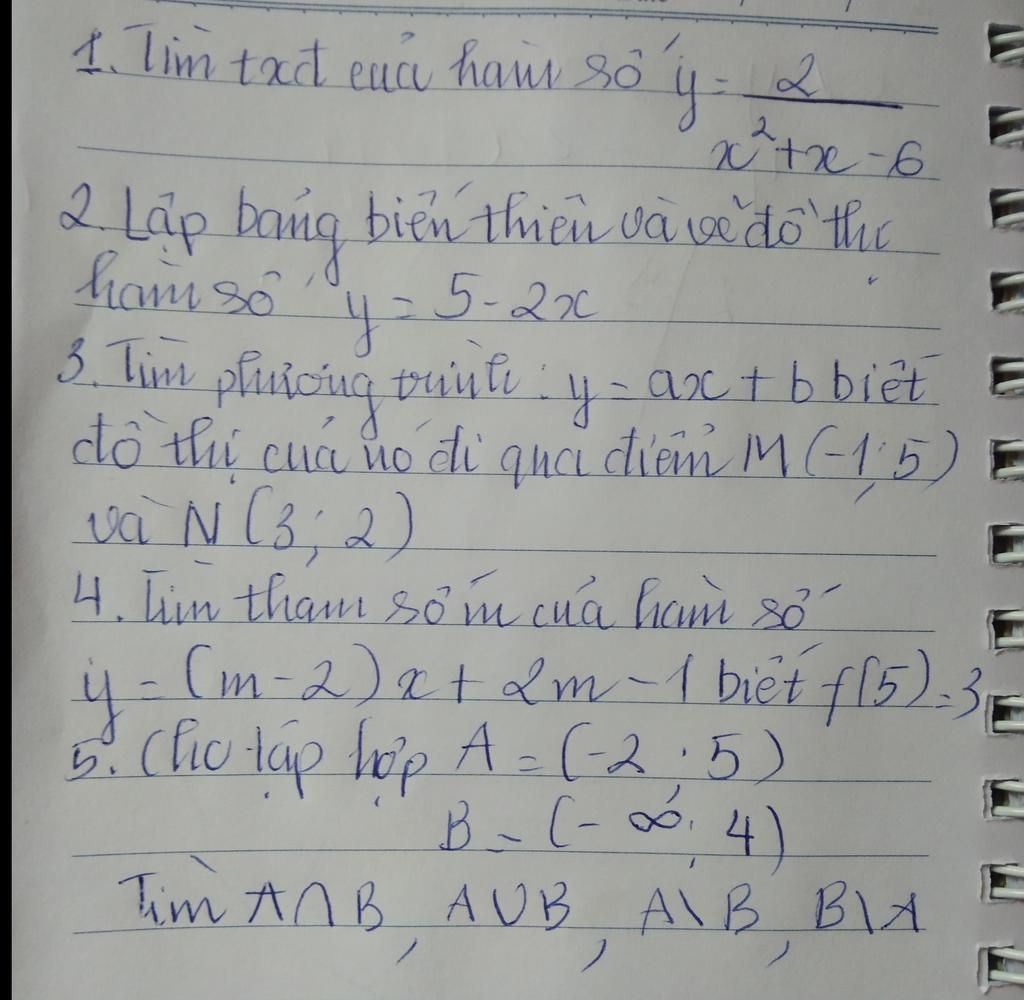 1. Tìm txđ của hàm số y = 2
x²+x-6
2. Lập bảng biến thiên và vẽ đồ thị
hàm số y = 5-2x
3. Tìm phương trình: y = ax + b biết
đồ thị của nó đi qua điểm M (-1; 5)
và N (3; 2)
4. Tìm tham số m của hàm số
y = (m-2)x + 2m - 1 biết f(5) = 3
5. Cho tập hợp A = (-2; 5)
B = (-∞; 4)
Tìm A∩B, A∪B, A\B, B\A